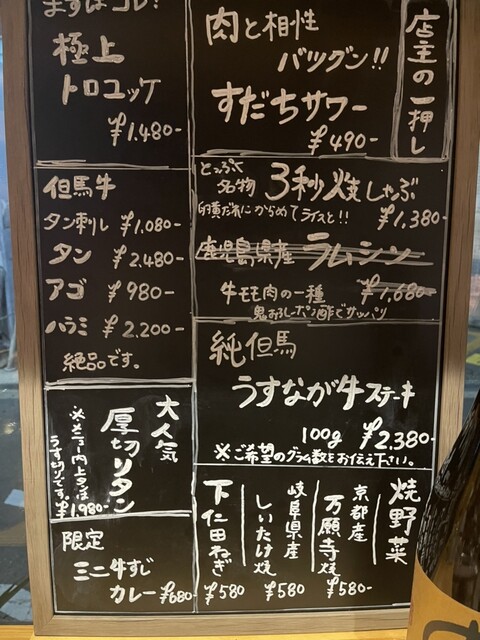 まずはコレ!
極上
トロユッケ
¥1.480-
但馬牛
タン刺し ¥1.080-
タン ¥2.480-
アゴ ¥980-
ハラミ ¥2.200-
絶品です。
大人気
厚切りタン
※メニュー内上タンは
うす切りです。
¥1.980-
限定
ミニ牛すじ
カレー ¥680-
店主の一押し
肉と相性
バツグン!!
すだちサワー
¥490-
とっぷく
名物 3秒焼しゃぶ
卵黄だれにからめてライスと!! ¥1,380-
鹿児島県産 ラムシン
牛モモ肉の一種 ¥1,680-
鬼おろしポン酢でサッパリ
純但馬
うすなが牛ステーキ
100g ¥2,380-
※ご希望のグラム数をお伝え下さい。
焼野菜
京都産
万願寺焼
¥580-
岐阜県産
しいたけ焼
¥580
下仁田ねぎ
¥580